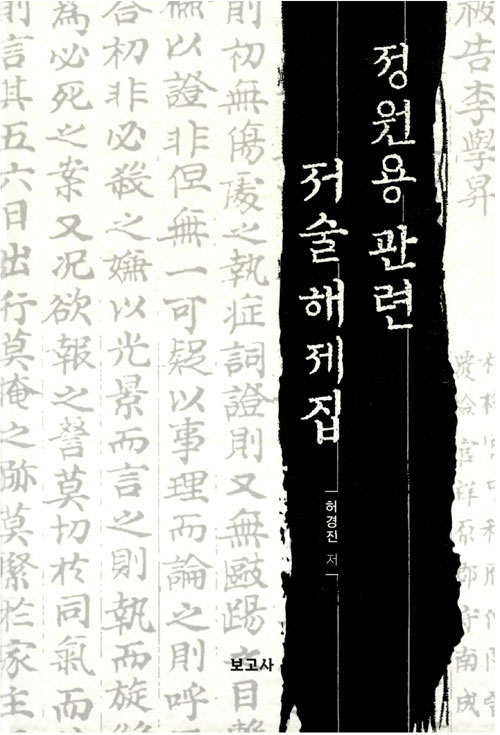 被告李學昇
정원용 관련
저술해제집
허경진 저
보고사
則初無傷處之執症詞證則又無毆踢之目擊
以證非但無一可疑以事理而論之則呼
合初非必殺之嫌以光景而言之則執而旋
為必死之案又況欲報之讐莫切於同氣而
則言其五六日出行莫掩之跡莫緊於家主